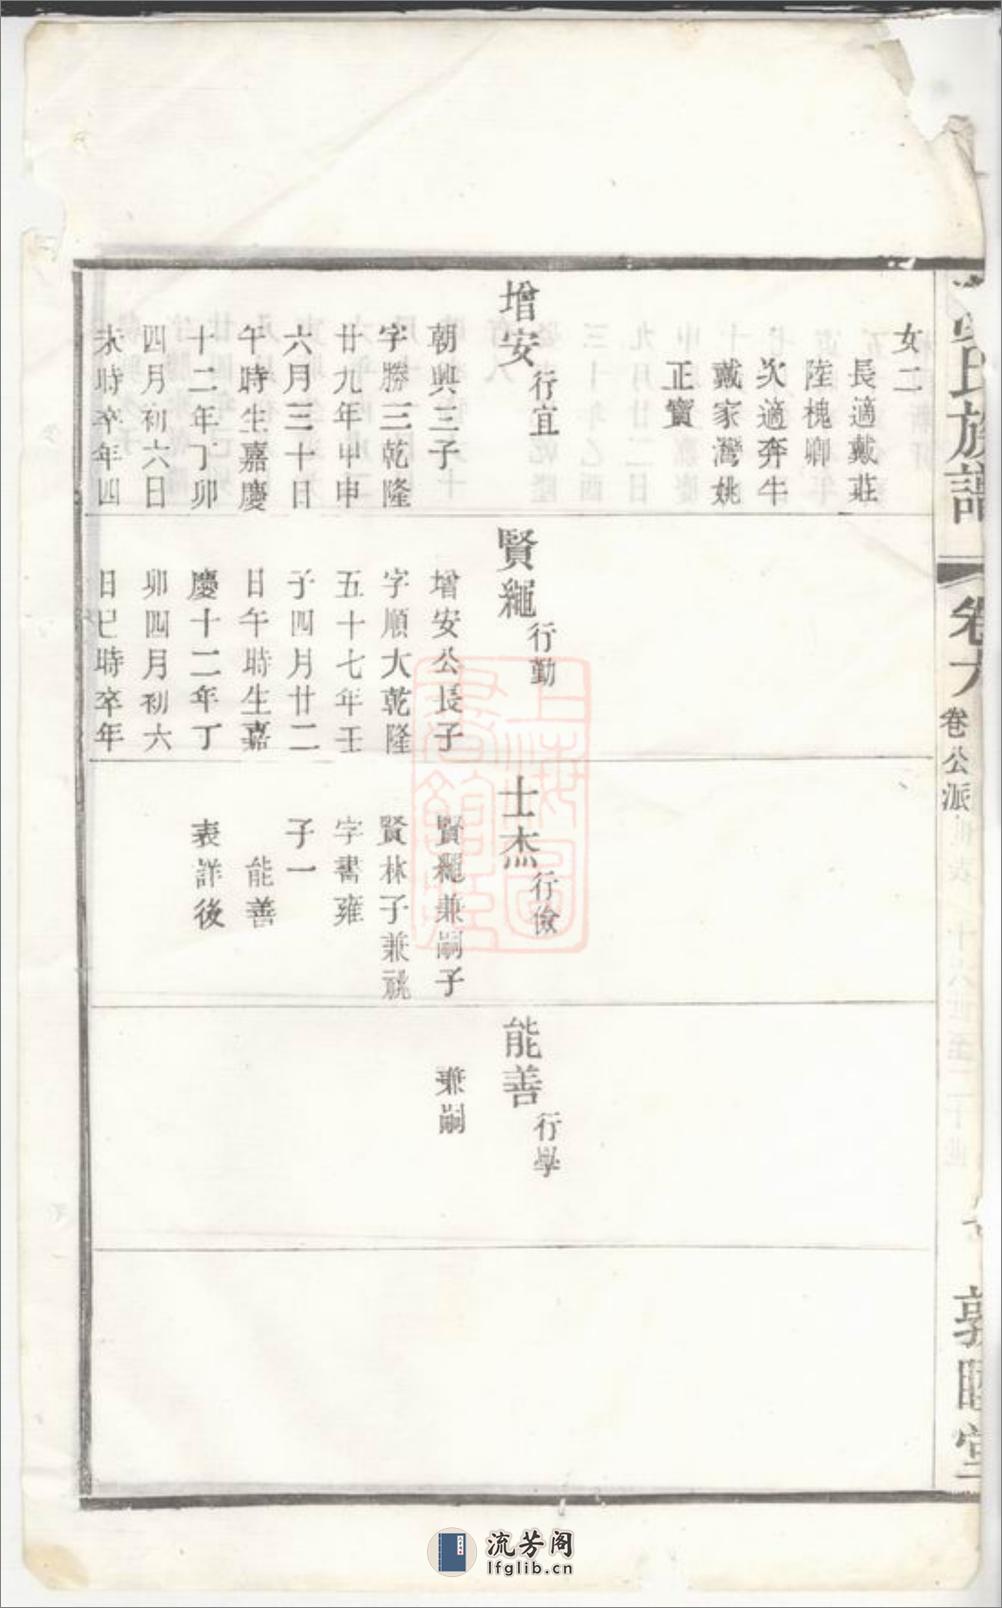 女二
長適戴莊
陸槐卿
次適奔牛
戴家灣姚
正寶
增安
行宜
朝興三子
字勝三乾隆
廿九年甲申
六月三十日
午時生嘉慶
十二年丁卯
四月初六日
未時卒年四
賢繩
行勤
增安公長子
字順大乾隆
五十七年壬
子四月廿二
日午時生嘉
慶十二年丁
卯四月初六
日巳時卒年
士杰
行儉
賢繩兼嗣子
賢林子兼祧
字書雍
子一
能善
表詳後
能善
行學
兼嗣
氏族譜
卷六
卷公派
敦睦堂
上海圖
書館藏
流芳阁
lfglib.cn